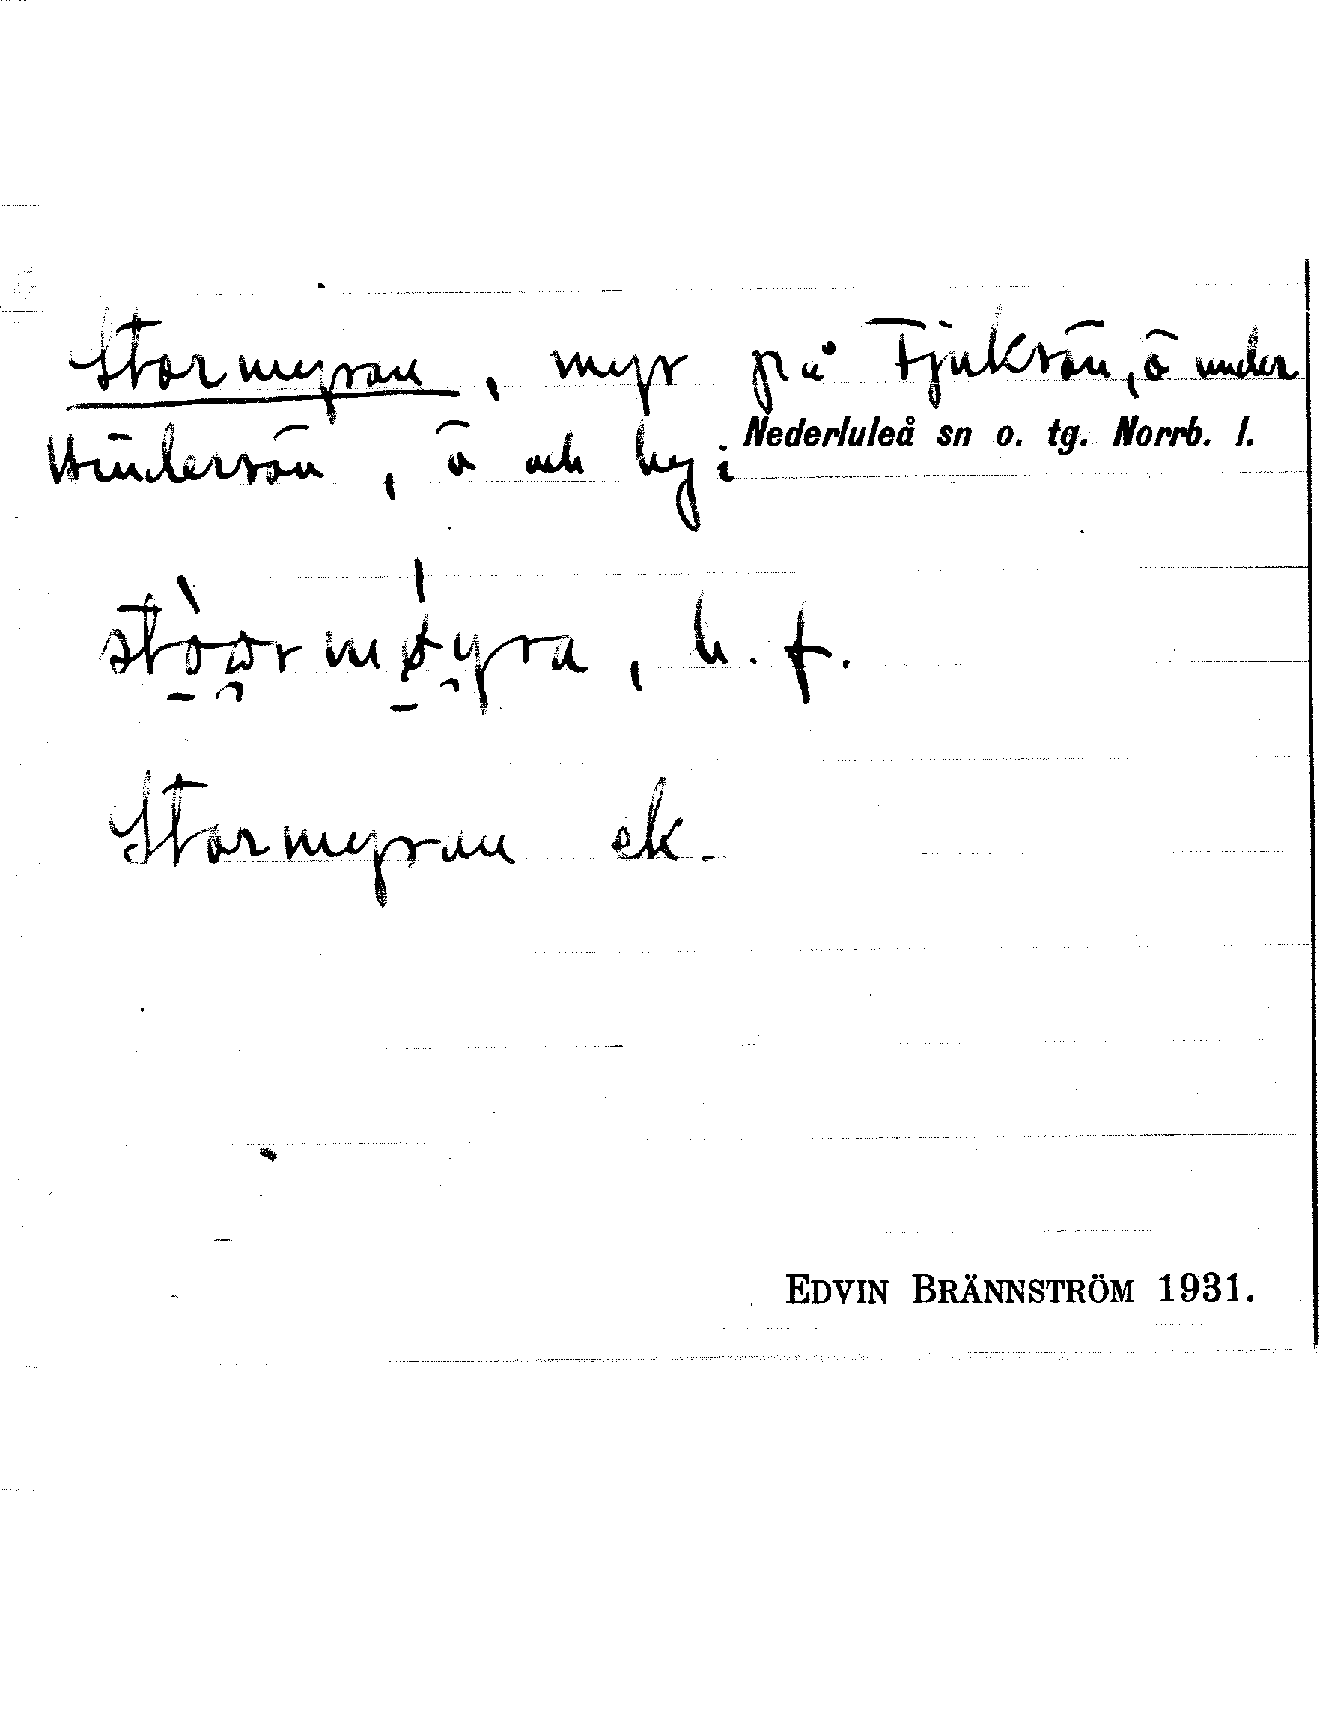 Stormyran, myr på Fjuksön, ö under
Hindersön, ö och by i Nederluleå sn o. tg. Norrb. l.
stòərmǿyra, b. f.
Stormyran ek.
EDVIN BRÄNNSTRÖM 1931.